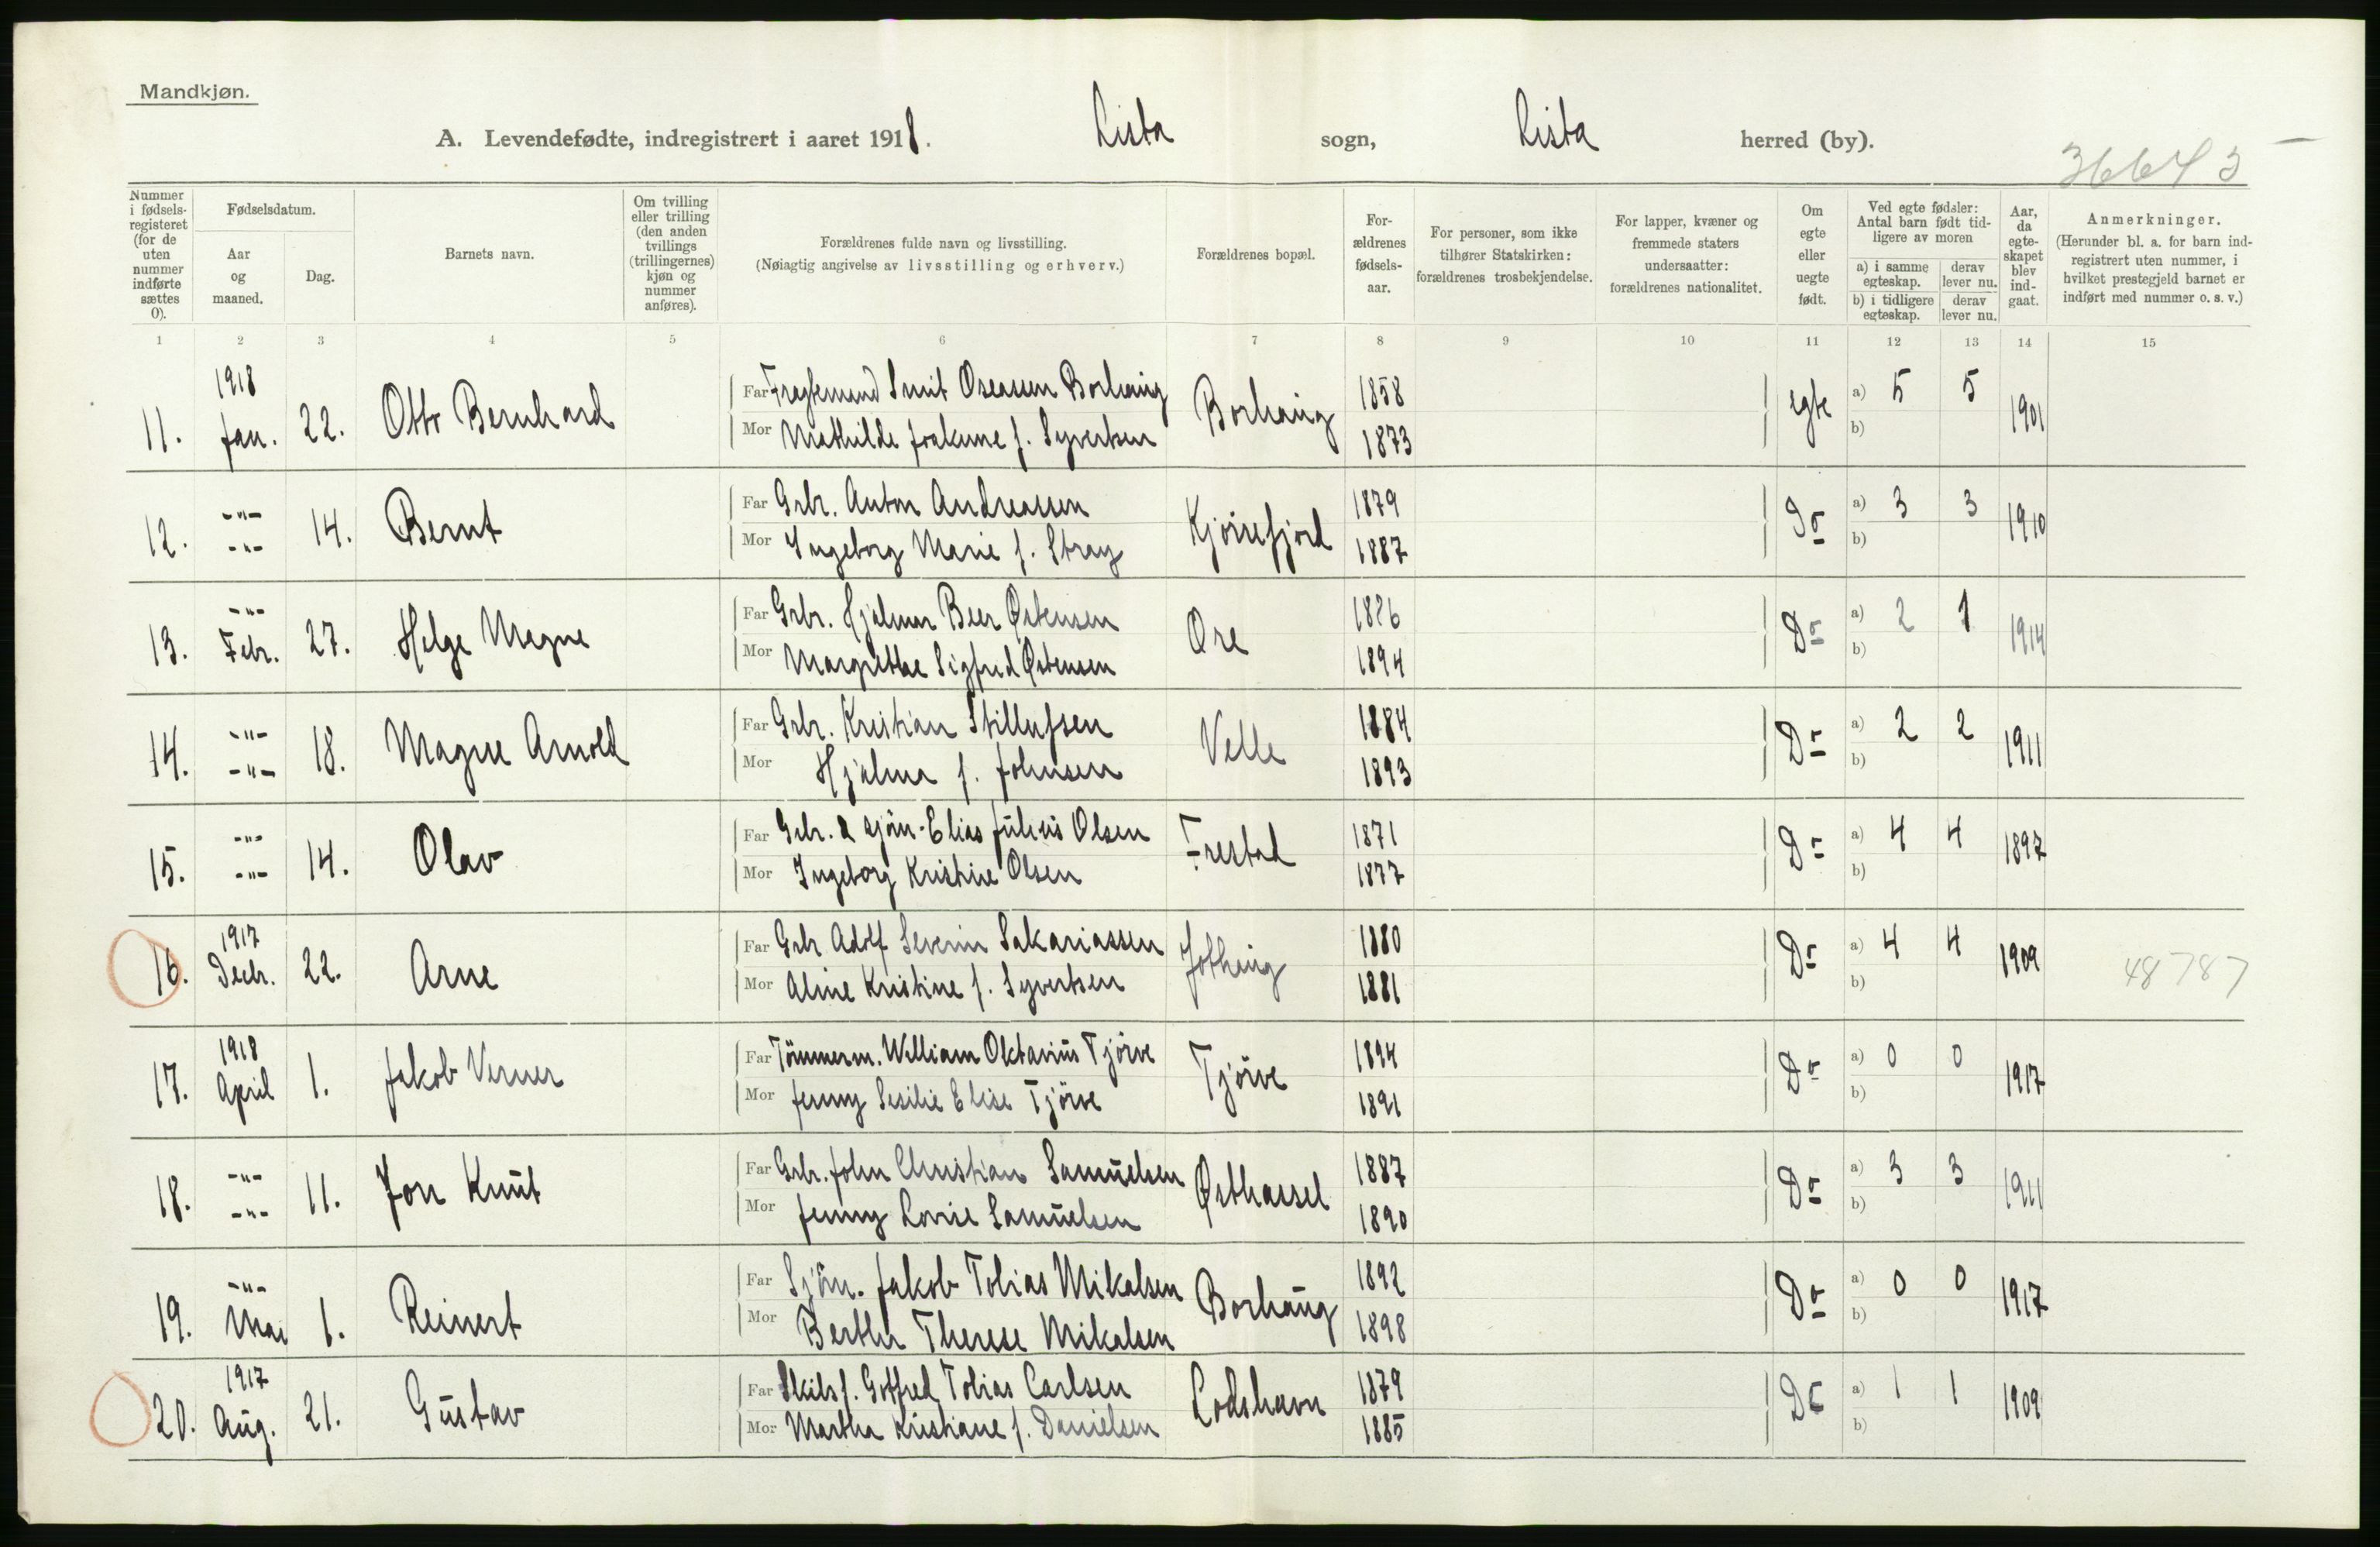 Mandkjøn.
A. Levendefødte, indregistrert i aaret 1918. Lista sogn, Lista herred (by).
36645
Nummer i fødsels-registeret (for de uten nummer indførte sættes 0).
Fødselsdatum.
Aar og maaned.
Dag.
Barnets navn.
Om tvilling eller trilling (den anden tvillings (trillingernes) kjøn og nummer anføres).
Forældrenes fulde navn og livsstilling.
(Nøiagtig angivelse av livsstilling og erhverv.)
Forældrenes bopæl.
For-ældrenes fødsels-aar.
For personer, som ikke tilhører Statskirken: forældrenes trosbekjendelse.
For lapper, kvæner og fremmede staters undersaatter: forældrenes nationalitet.
Om egte eller uegte født.
Ved egte fødsler: Antal barn født tid-ligere av moren
a) i samme egteskap. derav lever nu.
b) i tidligere egteskap. derav lever nu.
Aar, da egte-skapet blev ind-gaat.
Anmerkninger.
(Herunder bl. a. for barn ind-registrert uten nummer, i hvilket prestegjeld barnet er indført med nummer o. s. v.)
1 2 3 4 5 6 7 8 9 10 11 12 13 14 15
11. 1918 Jan. 22. Otto Bernhard
Far Fragtemand Smit Oseassen Borhaug Borhaug 1858 egte a) 5 5 1901
Mor Mathilde Joakime f. Syvertsen 1873 b)
12. -"- -"- 14. Bernt
Far Grbr. Anton Andreassen Kjørrefjord 1879 Do a) 3 3 1910
Mor Ingeborg Marie f. Stray 1887 b)
13. -"- Febr. 27. Helge Magne
Far Grbr. Hjalmar Beer Østensen Ore 1886 Do a) 2 1 1914
Mor Margrethe Sigfrid Østensen 1894 b)
14. -"- -"- 18. Magne Arnold
Far Grbr. Kristian Stillufsen Velle 1884 Do a) 2 2 1911
Mor Hjalma f. Johnsen 1893 b)
15. -"- -"- 14. Olav
Far Grbr. & sjöm. Elias Julius Olsen Frestad 1871 Do a) 4 4 1897
Mor Ingeborg Kristine Olsen 1877 b)
16. 1917 Decbr. 22. Arne
Far Grbr Adolf Severin Sakariassen 1880 Do a) 4 4 1909 48787
Mor Aline Kristine f. Syvertsen 1881 b)
17. 1918 April 1. Jakob Verner
Far Tömmerm. William Oktavius Tjörve Tjörve 1894 Do a) 0 0 1917
Mor Jenny Sesilie Elise Tjörve 1891 b)
18. -"- -"- 11. Jon Knut
Far Grbr. John Christian Samuelsen Østhassel 1887 Do a) 3 3 1911
Mor Jenny Lovise Samuelsen 1890 b)
19. -"- Mai 1. Reinert
Far Sjöm. Jakob Tobias Mikalsen Borhaug 1892 Do a) 0 0 1917
Mor Bertha Therese Mikalsen 1898 b)
20. 1917 Aug. 21. Gustav
Far Skibsf. Gotfred Tobias Carlsen Lodshavn 1879 Do a) 1 1 1909
Mor Martha Kristiane f. Danielsen 1885 b)